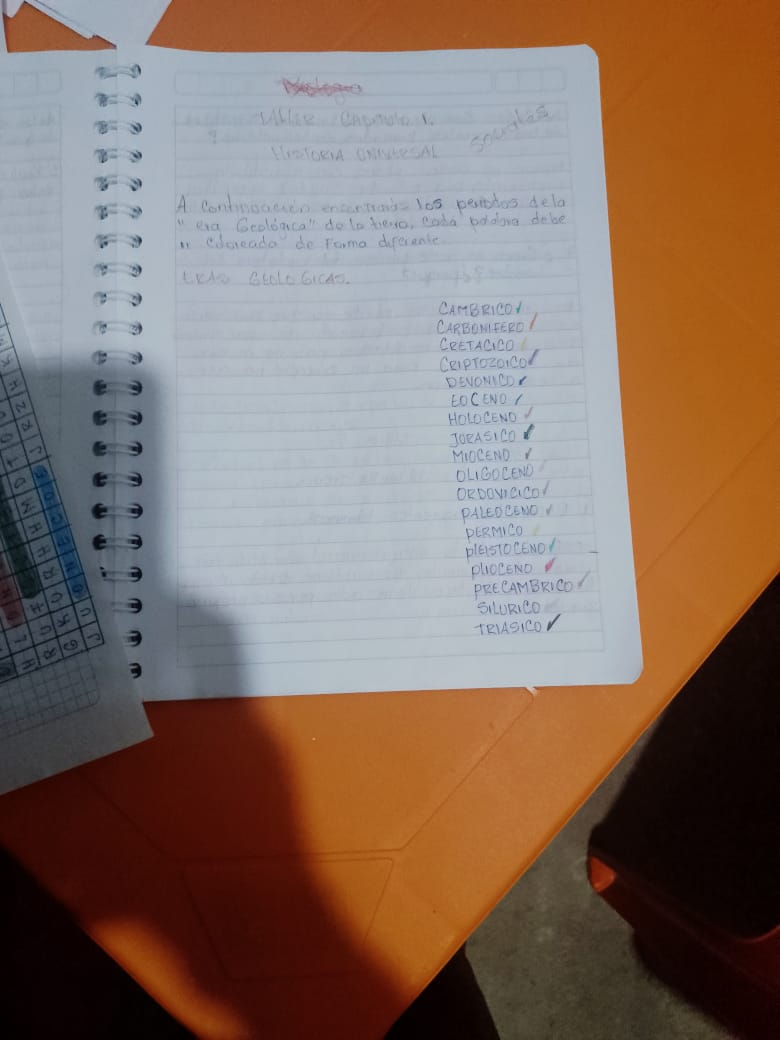 TALLER CAPITULO 1.
HISTORIA UNIVERSAL
A continuación encontrarás los periodos de la
" era Geológica" de la tierra, cada palabra debe
" coloreada" de Forma diferente.
ERAS GEOLOGICAS.
CAMBRICO ✓
CARBONIFERO
CRETACICO
CRIPTOZOICO ✓
DEVONICO ✓
EOCENO
HOLOCENO ✓
JURASICO ✓
MIOCENO ✓
OLIGOCENO
ORDOVICICO ✓
PALEOCENO ✓
PERMICO
PLEISTOCENO ✓
PLIOCENO ✓
PRECAMBRICO ✓
SILURICO
TRIASICO ✓